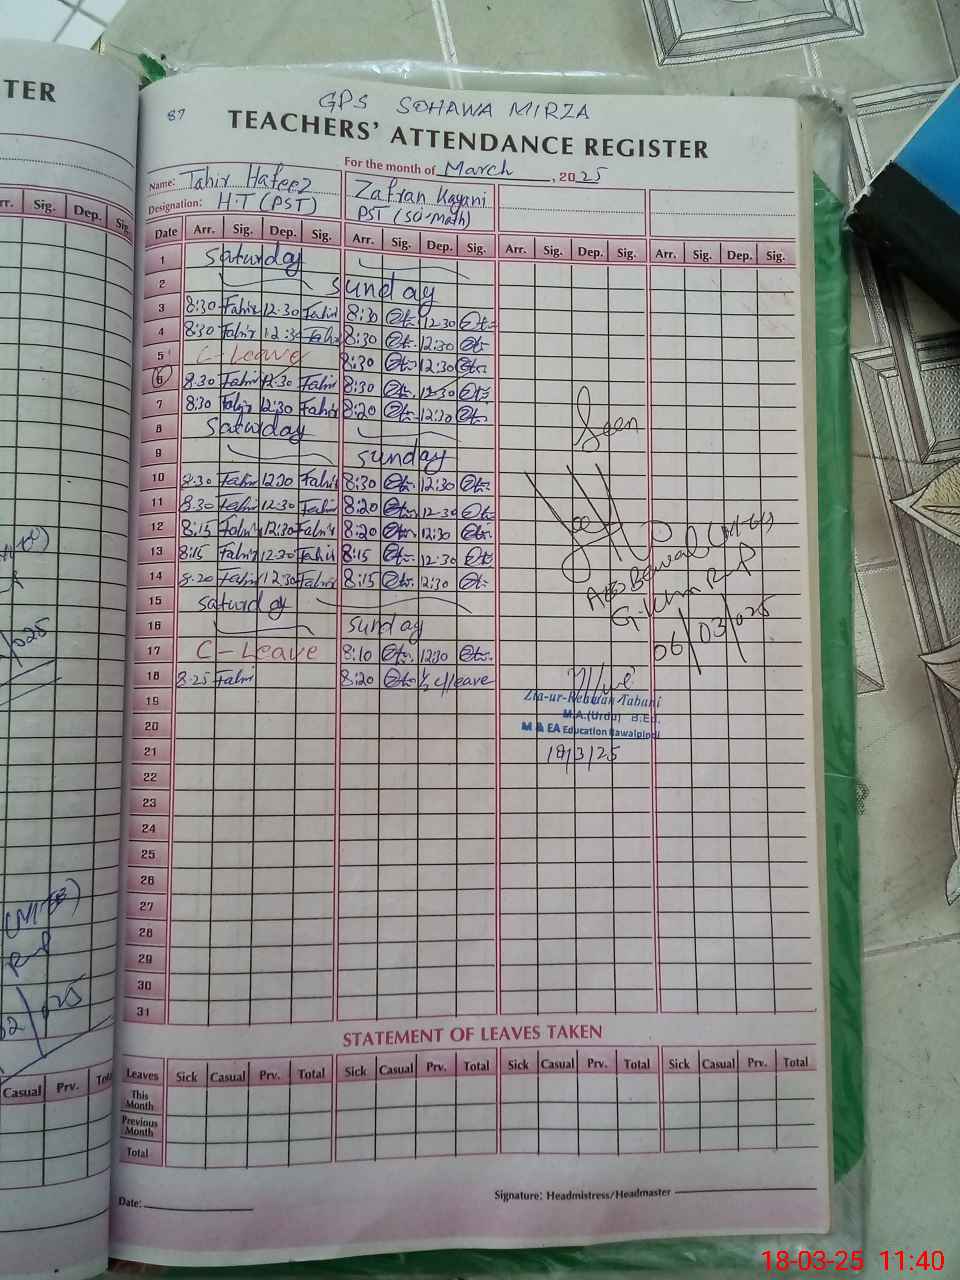 TER
GPS SOHAWA MIRZA
87
TEACHERS' ATTENDANCE REGISTER
For the month of March, 2025
Name: Tahir Hafeez
Designation: H.T (PST)
Zafran Kayani
PST (SO-math)
rr. Sig. Dep. Sig.
Date Arr. Sig. Dep. Sig. Arr. Sig. Dep. Sig. Arr. Sig. Dep. Sig. Arr. Sig. Dep. Sig.
1 Saturday
2 Sunday
3 8:30 Tahir 12:30 Tahir 8:30 12:30
4 8:30 Tahir 12:30 Tahir 8:30 12:30
5 C-Leave 8:30 12:30
6 8:30 Tahir 12:30 Tahir 8:30 12:30
7 8:30 Tahir 12:30 Tahir 8:20 12:30
8 Saturday
9 Sunday
10 8:30 Tahir 12:30 Tahir 8:30 12:30
11 8:30 Tahir 12:30 Tahir 8:20 12:30
12 8:15 Tahir 12:30 Tahir 8:20 12:30
13 8:15 Tahir 12:30 Tahir 8:15 12:30
14 8:20 Tahir 12:30 Tahir 8:15 12:30
15 Saturday
16 Sunday
17 C-Leave 8:10 12:30
18 8:25 Tahir 8:20 ½ c/leave
19
20
21
22
23
24
25
26
27
28
29
30
31
Seen
AEO Bewal (M-EE)
G.Khan R-P
06/03/025
Zia-ur-Rehman Tabani
M.A.(Urdu) B.Ed.
M & EA Education Rawalpindi
18/3/25
STATEMENT OF LEAVES TAKEN
Casual Prv. Total
Leaves Sick Casual Prv. Total Sick Casual Prv. Total Sick Casual Prv. Total Sick Casual Prv. Total
This Month
Previous Month
Total
Date:
Signature: Headmistress/Headmaster
18-03-25 11:40